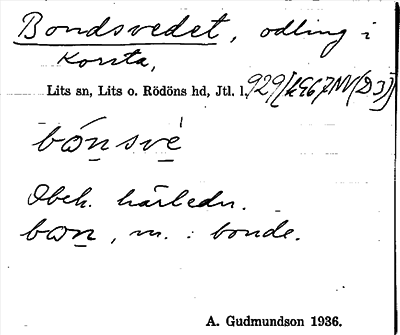 Bondsvedet, odling i
Korsta,
Lits sn, Lits o. Rödöns hd, Jtl. l.
bónsvè
Obek. härledn.
bon, m. : bonde.
A. Gudmundson 1936.